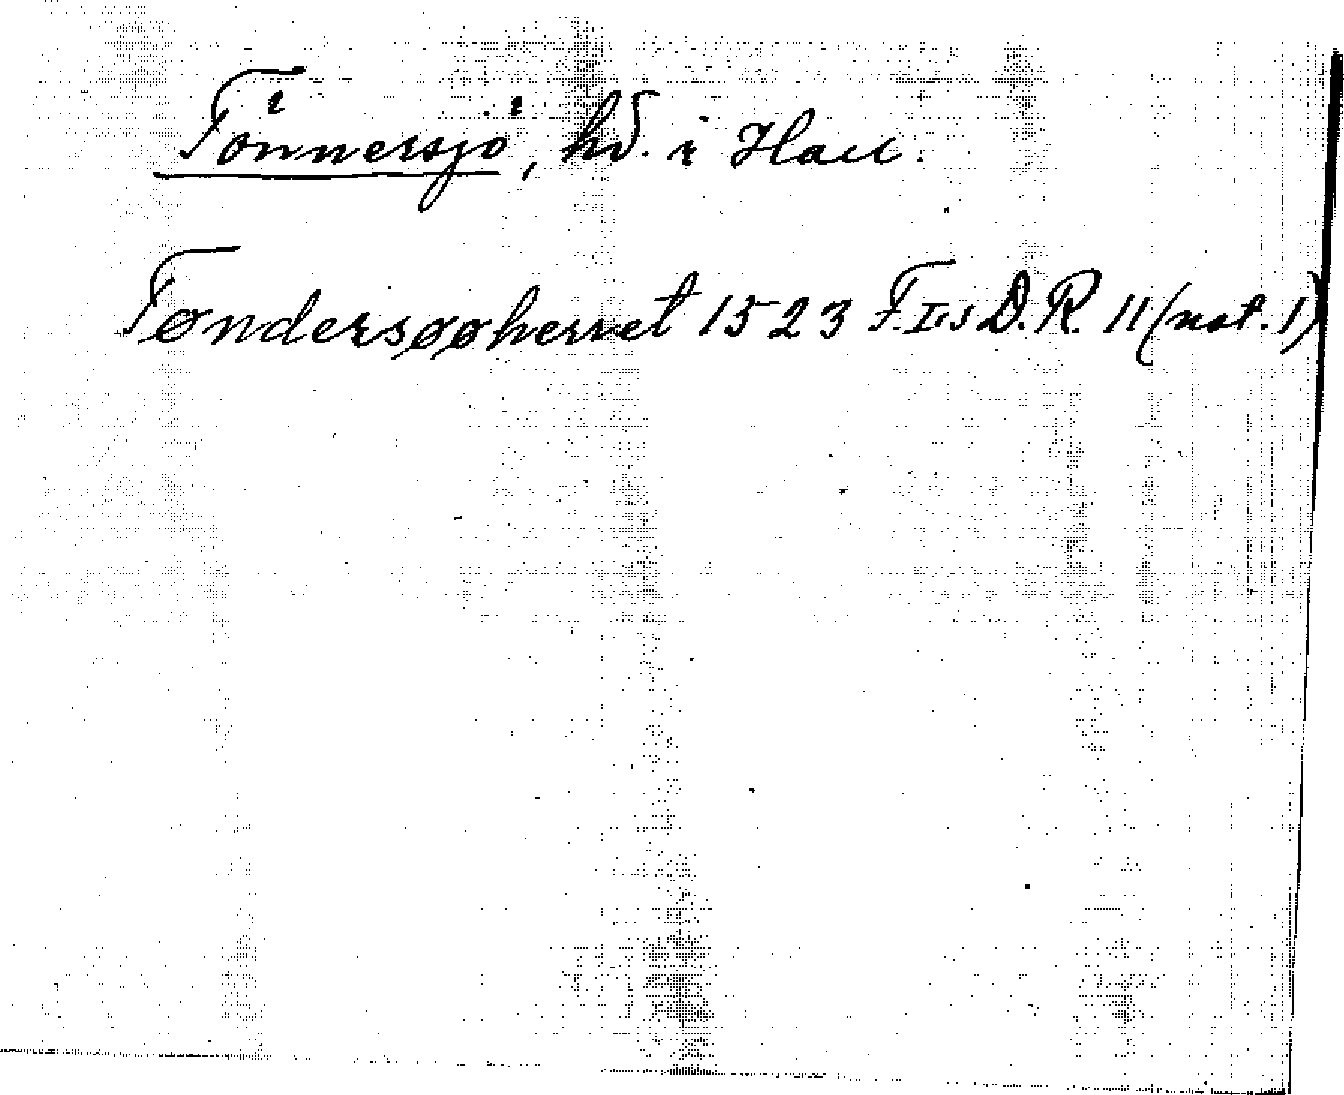 Tönnersjö, hd. i Hall.
Tøndersøøherret 1523 F.I:s D.R. 11 (not. 1)